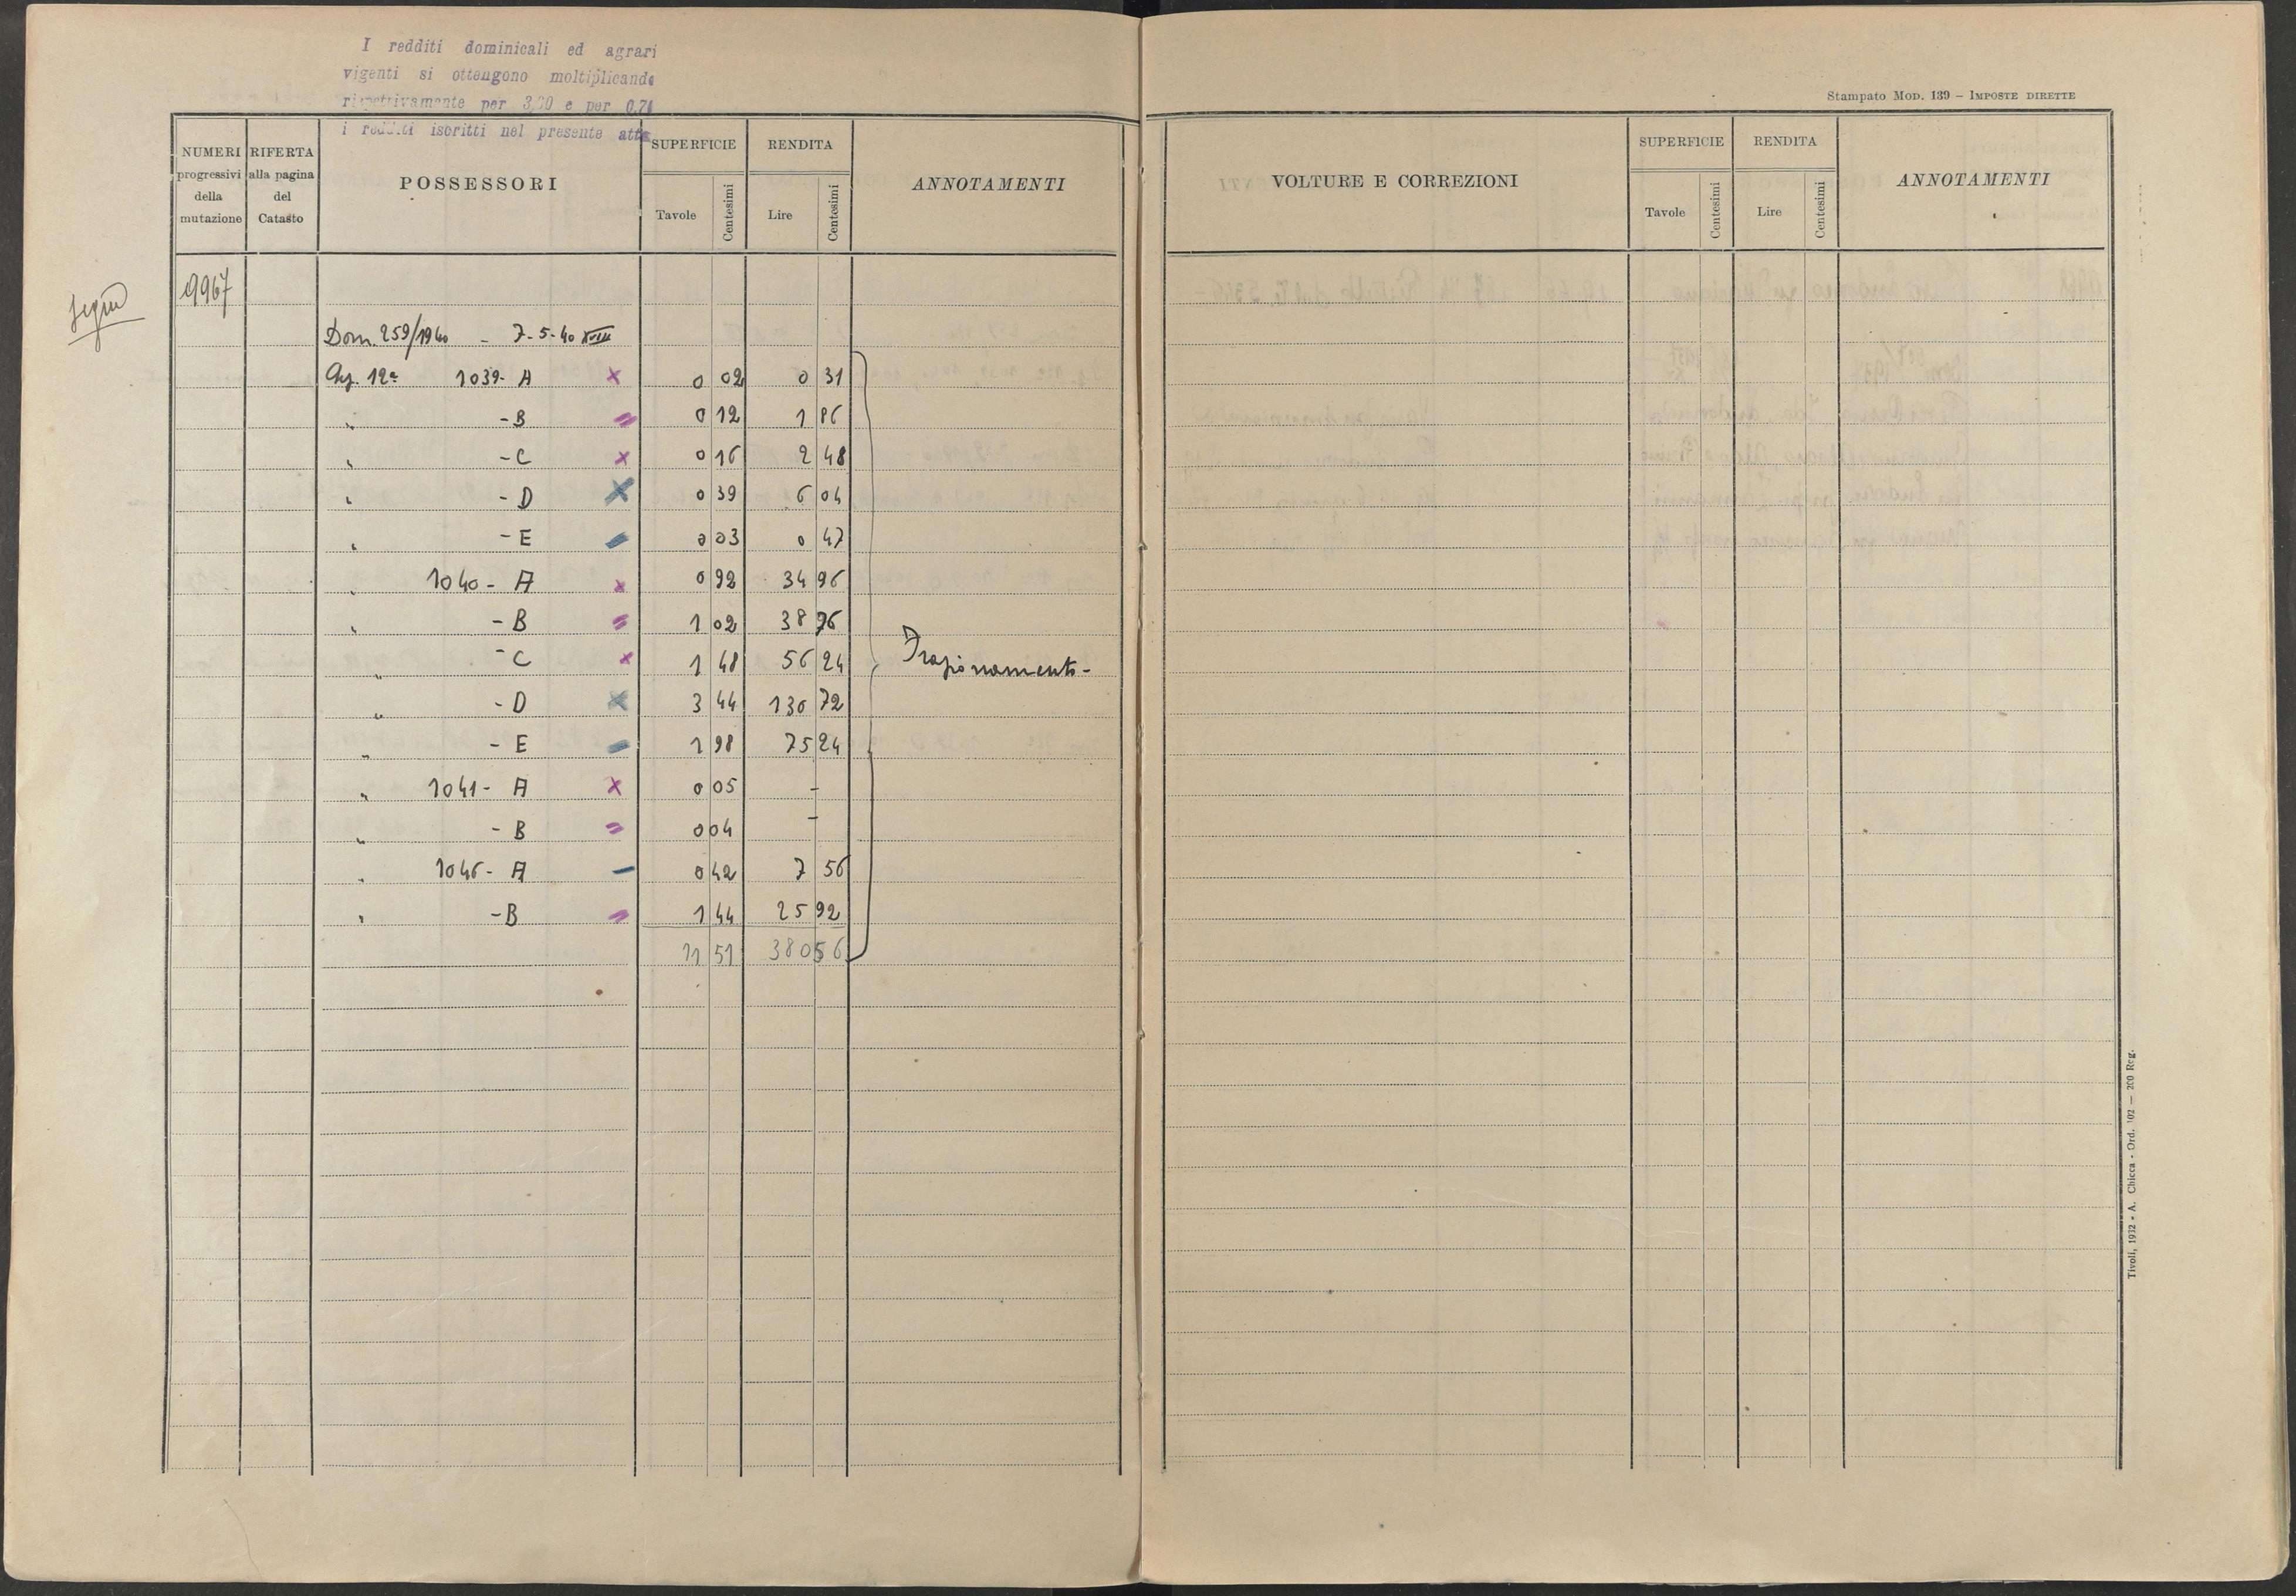 I redditi dominicali ed agrari
vigenti si ottengono moltiplicando
rispettivamente per 3,20 e per 0,71
i redditi iscritti nel presente atto
Stampato Mod. 139 – Imposte dirette
NUMERI progressivi della mutazione
RIFERTA alla pagina del Catasto
POSSESSORI
SUPERFICIE
Tavole Centesimi
RENDITA
Lire Centesimi
ANNOTAMENTI
VOLTURE E CORREZIONI
SUPERFICIE
Tavole Centesimi
RENDITA
Lire Centesimi
ANNOTAMENTI
segue
9967
Dom. 259/1940 - 7-5-40 XVIII
12a 1039- A × 0 02 0 31
" -B = 0 12 1 86
" -C × 0 16 2 48
" -D × 0 39 6 04
" -E - 0 03 0 47
" 1040- A × 0 92 34 96
" -B = 1 02 38 76
" -C × 1 48 56 24
" -D × 3 44 130 72
" -E - 1 98 75 24
" 1041- A × 0 05 -
" -B = 0 04 -
" 1046- A - 0 42 7 56
" -B = 1 44 25 92
11 51 380 56
Frazionamento-
Tivoli, 1932 - A. Chicca - Ord. 102 — 200 Reg.